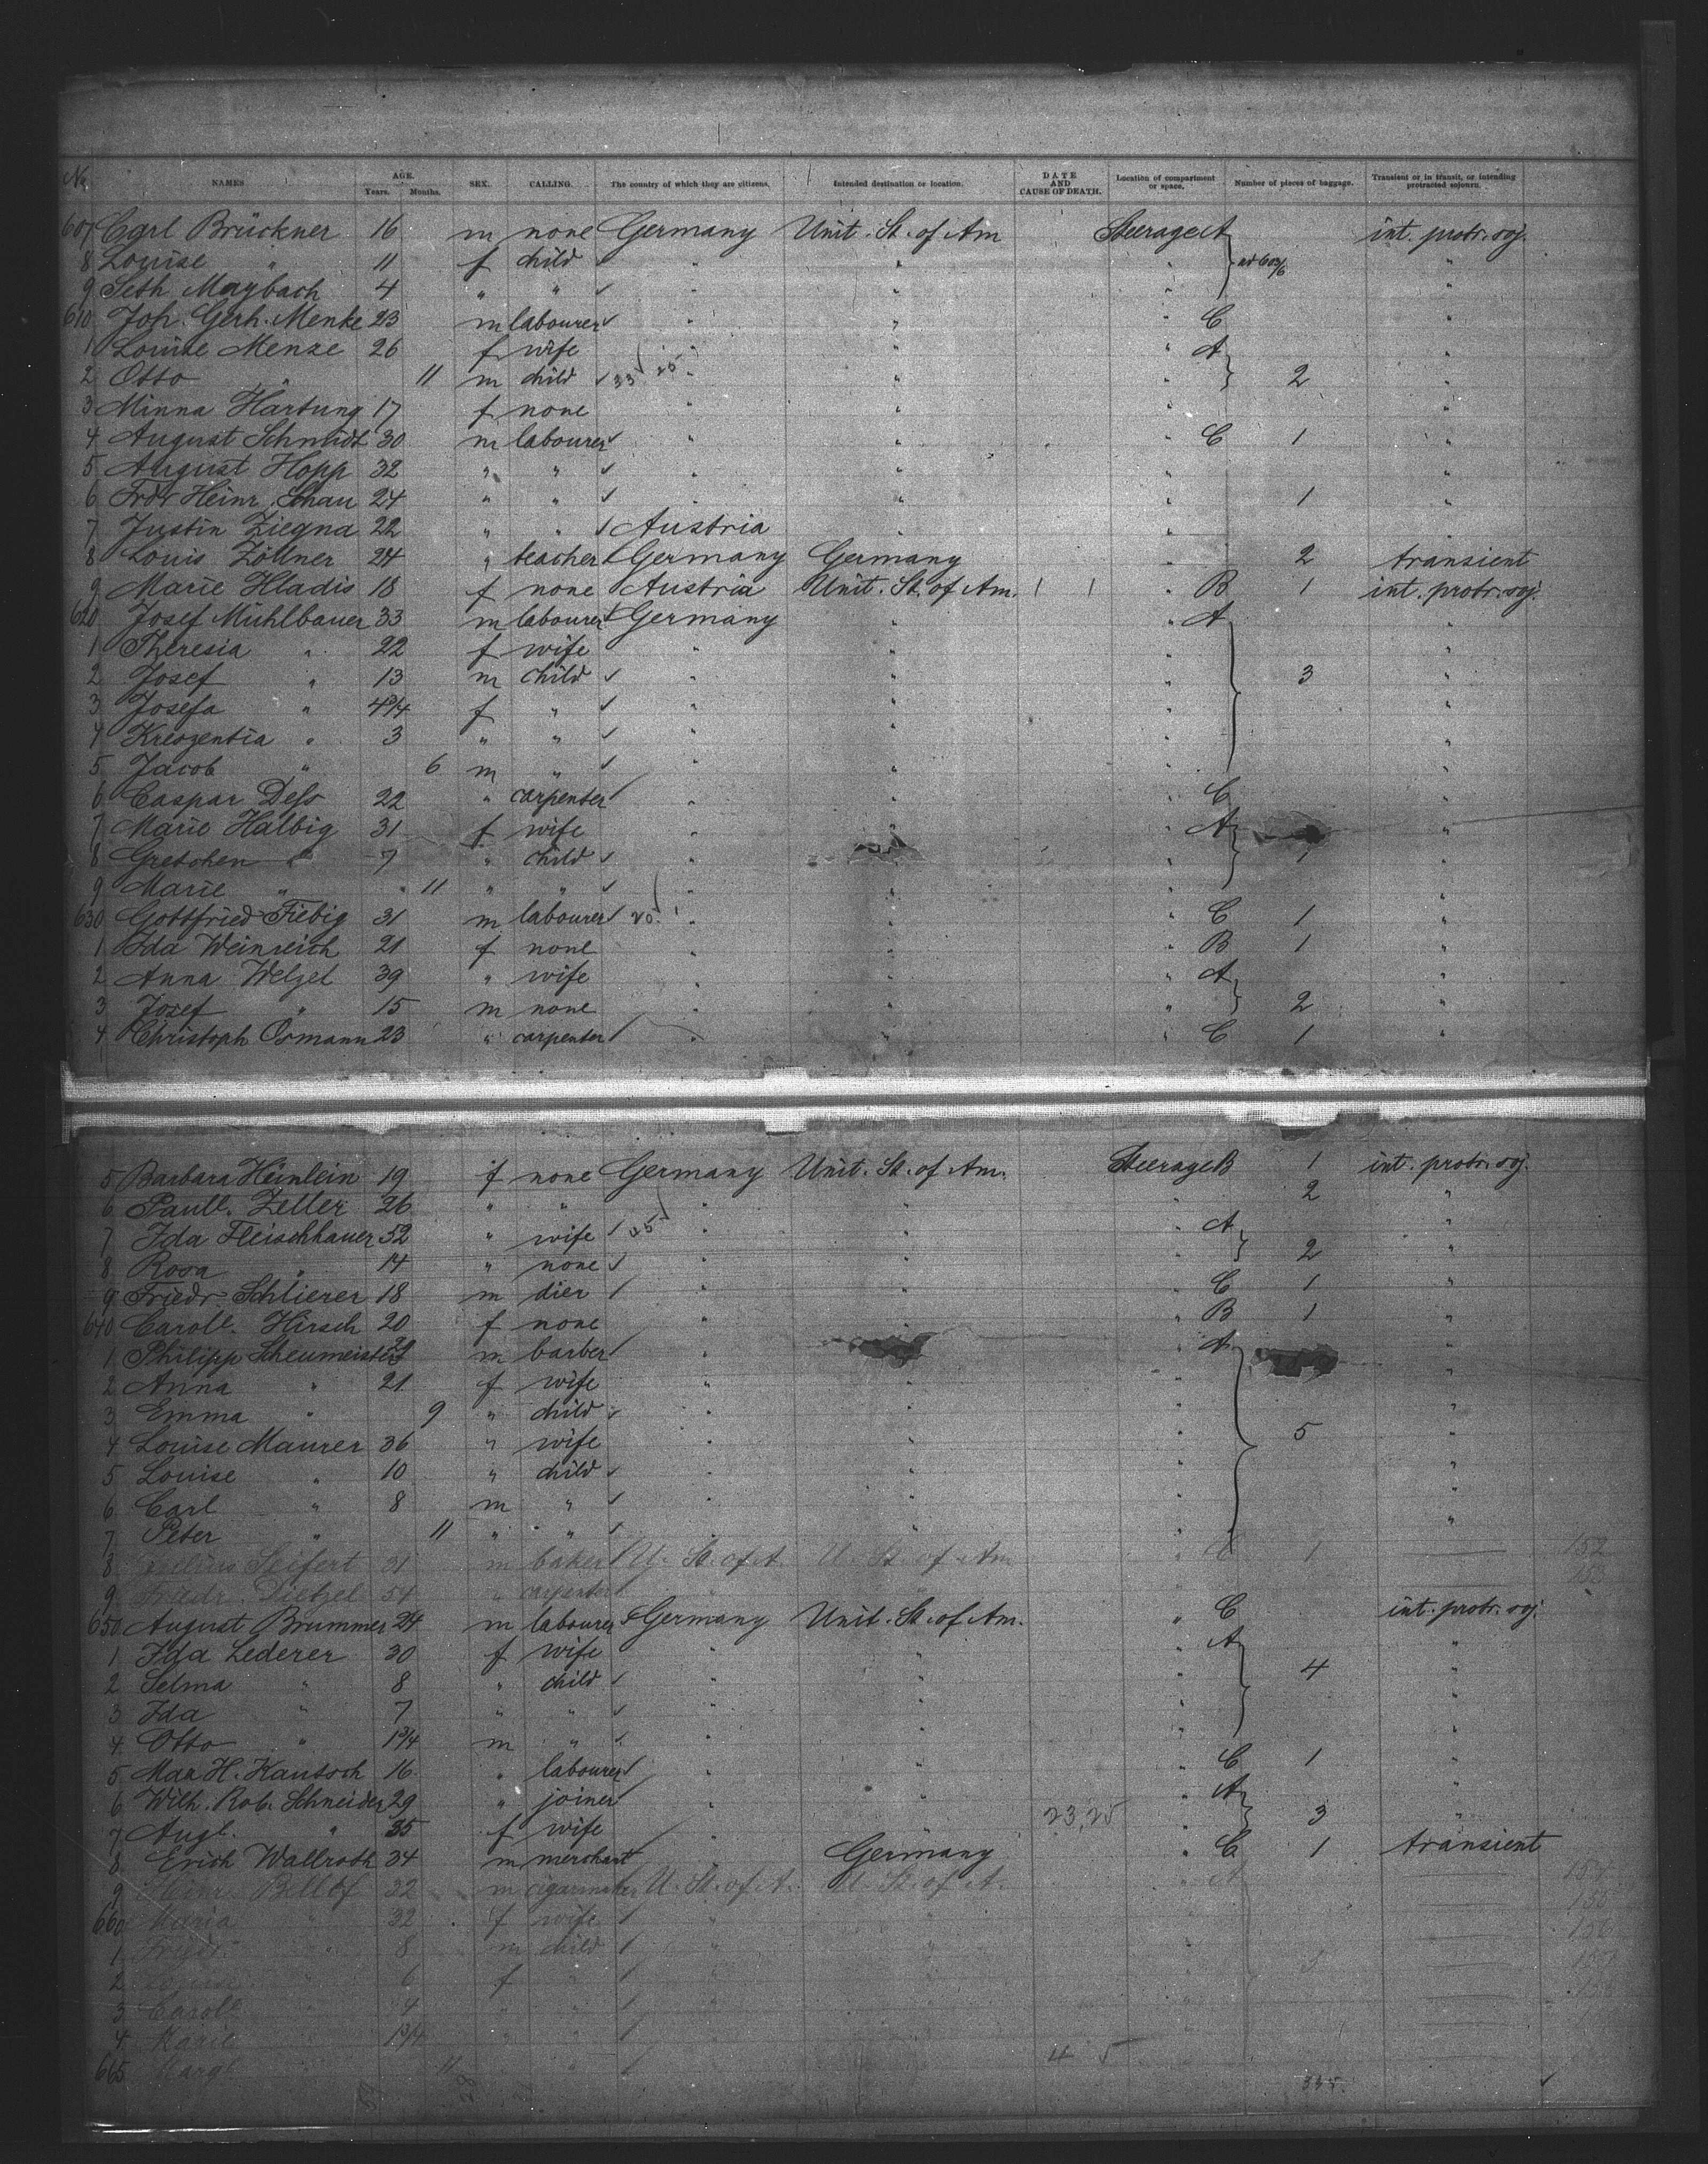 No. NAMES AGE. Years. Months. SEX. CALLING. The country of which they are citizens. Intended destination or location. DATE AND CAUSE OF DEATH. Location of compartment or space. Number of pieces of baggage. Transient or in transit, or intending protracted sojourn.
607 Carl Brückner 16 m none Germany Unit. St. of Am Steerage A int. protr. soj.
8 Louise " 11 f child " " " ad 603/6 "
9 Seth Maybach 4 " " " " " "
610 Joh. Gerh. Menke 23 m labourer " " " C "
1 Louise Menze 26 f wife " " " A "
2 Otto " 11 m child 33 25 " " " 2 "
3 Minna Hartung 17 f none " " "
4 August Schmidt 30 m labourer " " " C 1 "
5 August Hopp 32 " " " " " "
6 Frdr Heinr. Schau 24 " " " " " 1 "
7 Justin Ziegna 22 " " Austria " " "
8 Louis Zöllner 24 " teacher Germany Germany " 2 transient
9 Marie Hladis 18 f none Austria Unit. St. of Am. " B 1 int. protr. soj.
620 Josef Mühlbauer 33 m labourer Germany " " A "
1 Theresia " 22 f wife " " " "
2 Josef " 13 m child " " " 3 "
3 Josefa " 4 3/4 f " " " " "
4 Kreszentia " 3 " " " " " "
5 Jacob " 6 m " " " " "
6 Caspar Deß 22 " carpenter " " " C "
7 Marie Halbig 31 f wife " " " A "
8 Gretchen " 7 " child " " "
9 Marie " " 11 " " " " " "
630 Gottfried Fiebig 31 m labourer 20 " " " C 1 "
1 Ida Weinreich 21 f none " " " B 1 "
2 Anna Welzel 39 " wife " " " A "
3 Josef " 15 m none " " " 2 "
4 Christoph Osmann 23 " carpenter " " " C 1 "
5 Barbara Heinlein 19 f none Germany Unit. St. of Am. Steerage B 1 int. protr. soj.
6 Paull. Zeller 26 " " " " " 2 "
7 Ida Fleischhauer 52 " wife 25 " " " A "
8 Rosa " 14 " none " " " 2 "
9 Friedr. Schlierer 18 m dier " " " C 1 "
640 Caroll. Hirsch 20 f none " " " B 1 "
1 Philipp Scheumeister m barber " " A "
2 Anna " 21 f wife " " " "
3 Emma " 9 " child " " " "
4 Louise Maurer 36 " wife " " " 5 "
5 Louise " 10 " child " " " "
6 Carl " 8 m " " " " "
7 Peter " 11 " " " " " "
8 Seifert 31 m baker U. St. of A. U. St. of Am " C 1 152
9 Friedr. Dietzel 54 " carpenter " " 153
650 August Brummer 24 m labourer Germany Unit. St. of Am. " C int. protr. soj.
1 Ida Lederer 30 f wife " " " A "
2 Selma " 8 " child " " " 4 "
3 Ida " 7 " " " " " "
4 Otto " 1 3/4 m " " " " "
5 Max H. Kautsch 16 " labourer " " " C 1 "
6 Wilh. Rob. Schneider 29 " joiner " " " A "
7 Augl. " 35 f wife " 23,25 " 3 "
8 Erich Wallroth 34 m merchant " Germany " C 1 transient
9 32 m cigarmaker U. St. of A. U. St. of A. " A
660 Maria " 32 f wife " " 155
1 8 m child " " 156
2 6 f " " 3 157
3 Caroll. 4 " " "
4 Marie 1 3/4 " "
665 Margt 11 " 4 5
335.